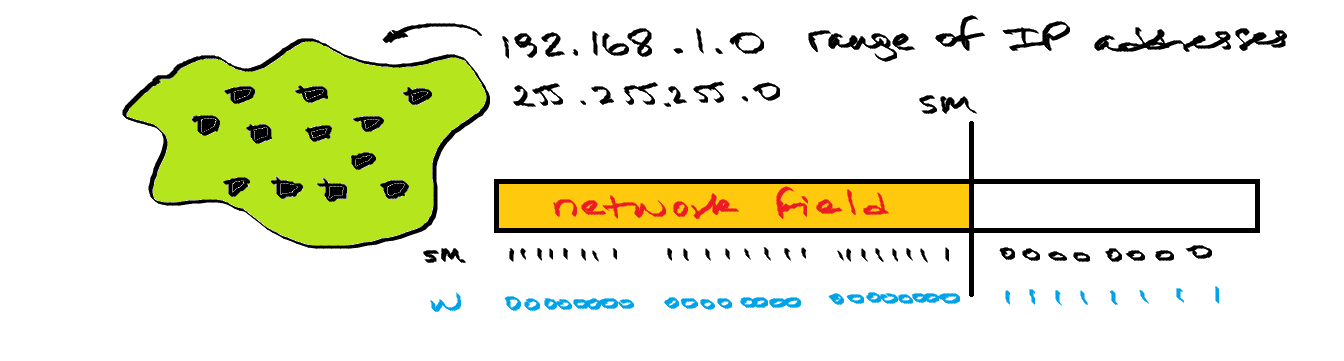 192.168.1.0 range of IP addresses
255.255.255.0
SM
network field
SM 11111111 11111111 11111111 00000000
W 00000000 00000000 00000000 11111111